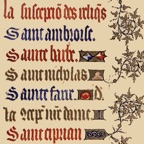 la suscepciõ des reliq̃s
Saint ambroise.
Sainte barbe.
Saint nicolas.
Sainte fare. D.
La 9cepc̃ nr̃e dame.
Saint ciprian